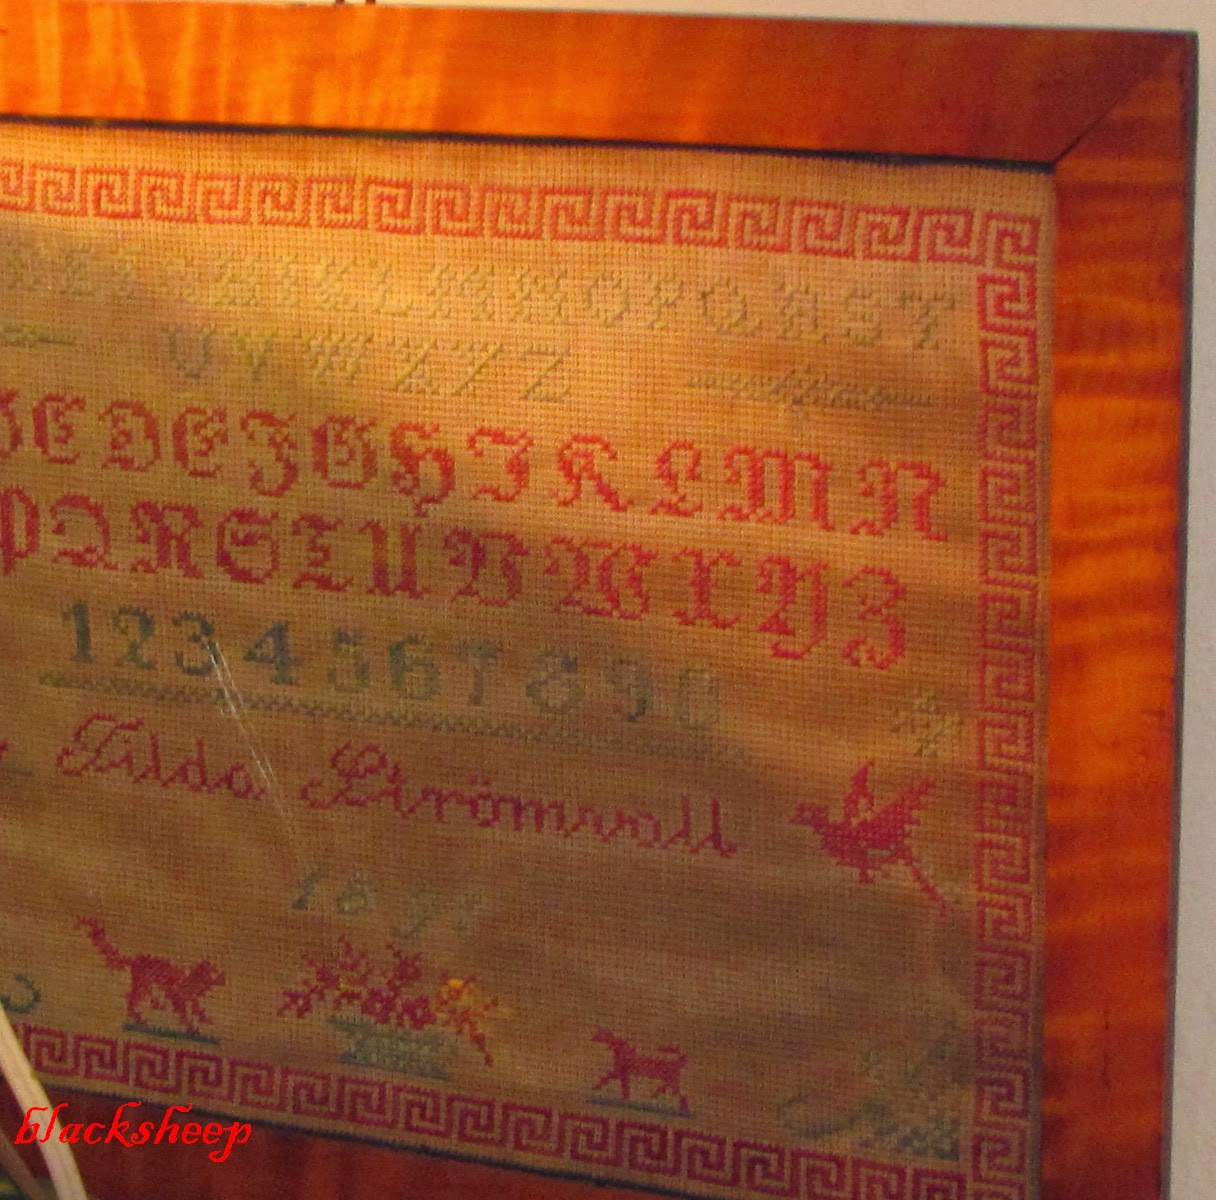 G H I K L M N O P Q R S T
U V W X Y Z
C D E F G H I K L M N
P Q R S T U V W X Y Z
1 2 3 4 5 6 7 8 9 0
Tilda Strömvall
blacksheep